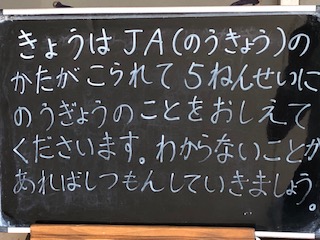 きょうはJA(のうきょう)の
かたがこられて5ねんせいに
のうぎょうのことをおしえて
くださいます。わからないことが
あればしつもんしていきましょう。